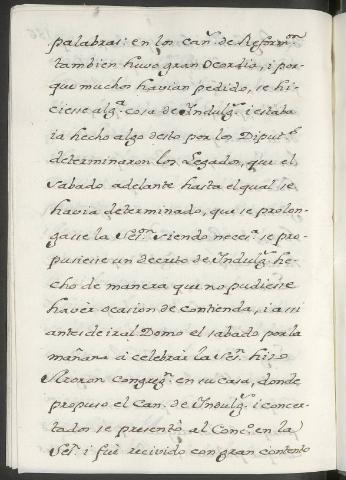 palabras: en los can.^s de Reform.^on
tambien huvo gran Dcordia, i por-
que muchos havian pedido, se hi-
ciesse alg.^a cosa de Indulg.^s i estaba
ia hecho algo desto por los Diput.^s
determinaron los Legados, que el
sabado adelante hasta el qual se
havia determinado, que se prolon-
gasse la Ses.^on siendo neces.^o se pro-
pusiesse un decreto de Indulg.^s he-
cho de manera que no pudiesse
haver ocasion de contienda, i assi
antes de ir al Domo el sabado por la
mañana á celebrar la Ses.^n hizo
Moron congreg.^n en su casa, donde
propuso el Can. de Indulg.^s i concer-
tados se presentò al Conc.^o en la
Ses.^n i fuè recivido con gran contento